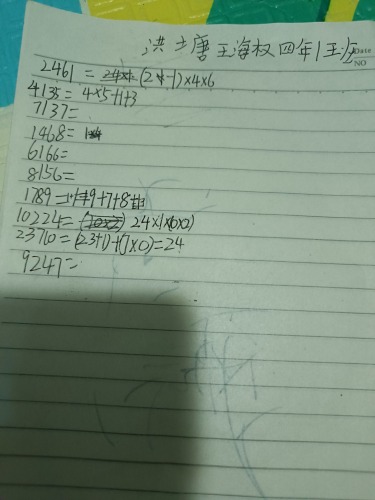 洪塘王海权四年1王
Date
NO
2461 = (2-1)×4×6
4135= 4×5+1+3
7137=
1468= 1
6166=
8156=
1789=1+9+7+8
10224= 24×1×(0×0)
23710=(23+1)+(7×0)=24
9247=